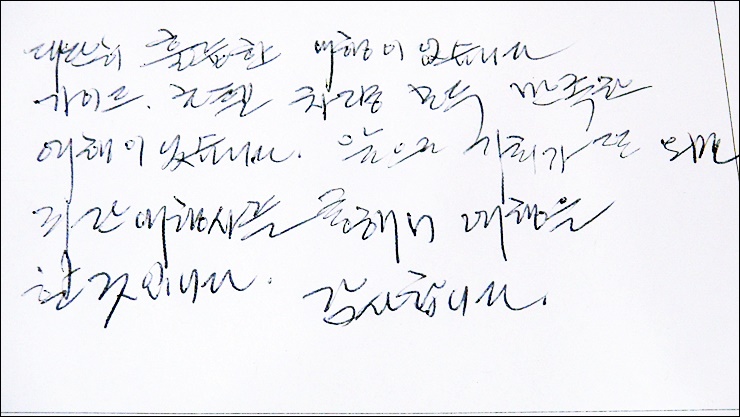 대단히 훌륭한 여행이었습니다
가이드. 호텔 차량 모두 만족한
여행이었습니다. 앞으로 기회가 또 되면
여행사를 통해서 여행을
할것입니다. 감사합니다.